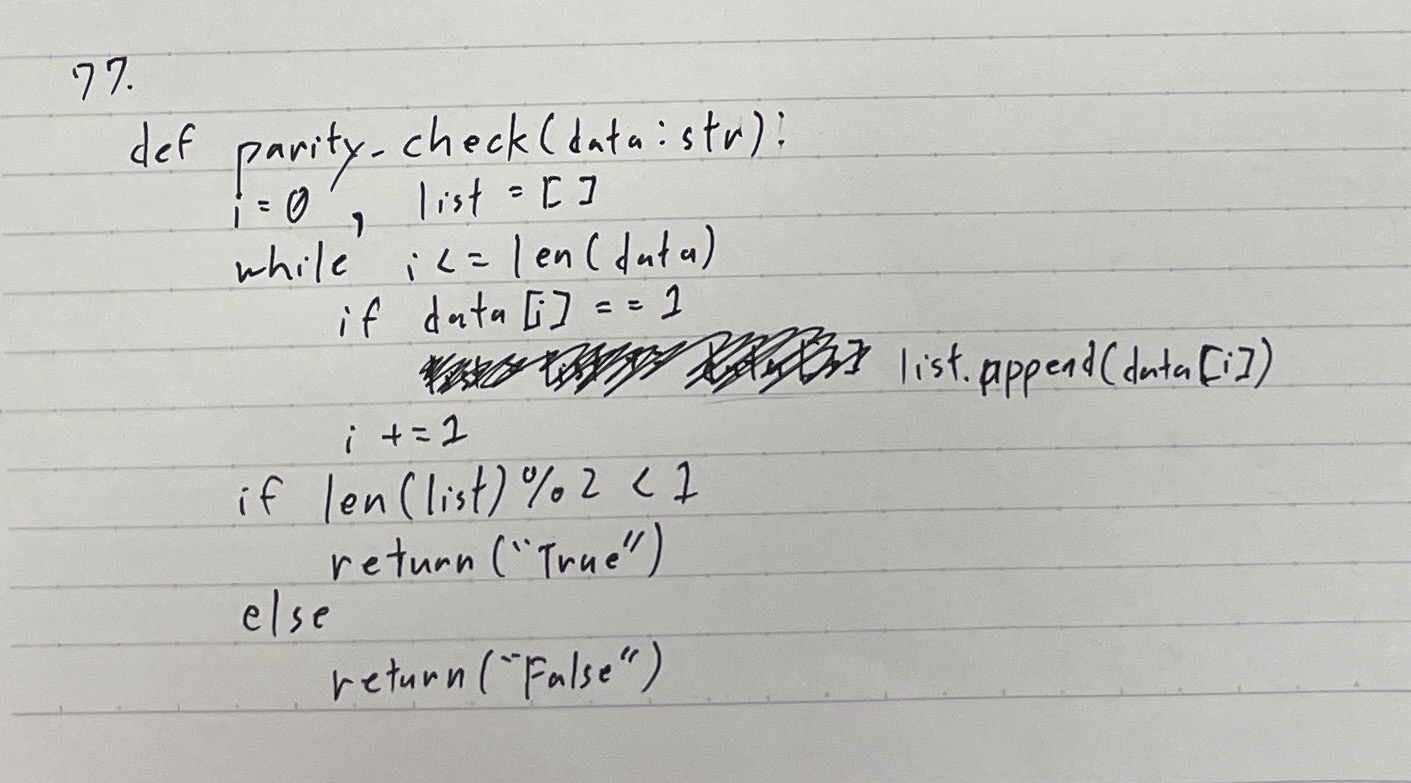 77.
def parity_check(data:str):
i=0, list = []
while i <= len(data)
if data[i] == 1
list.append(data[i])
i += 1
if len(list)%2 < 1
return("True")
else
return("False")